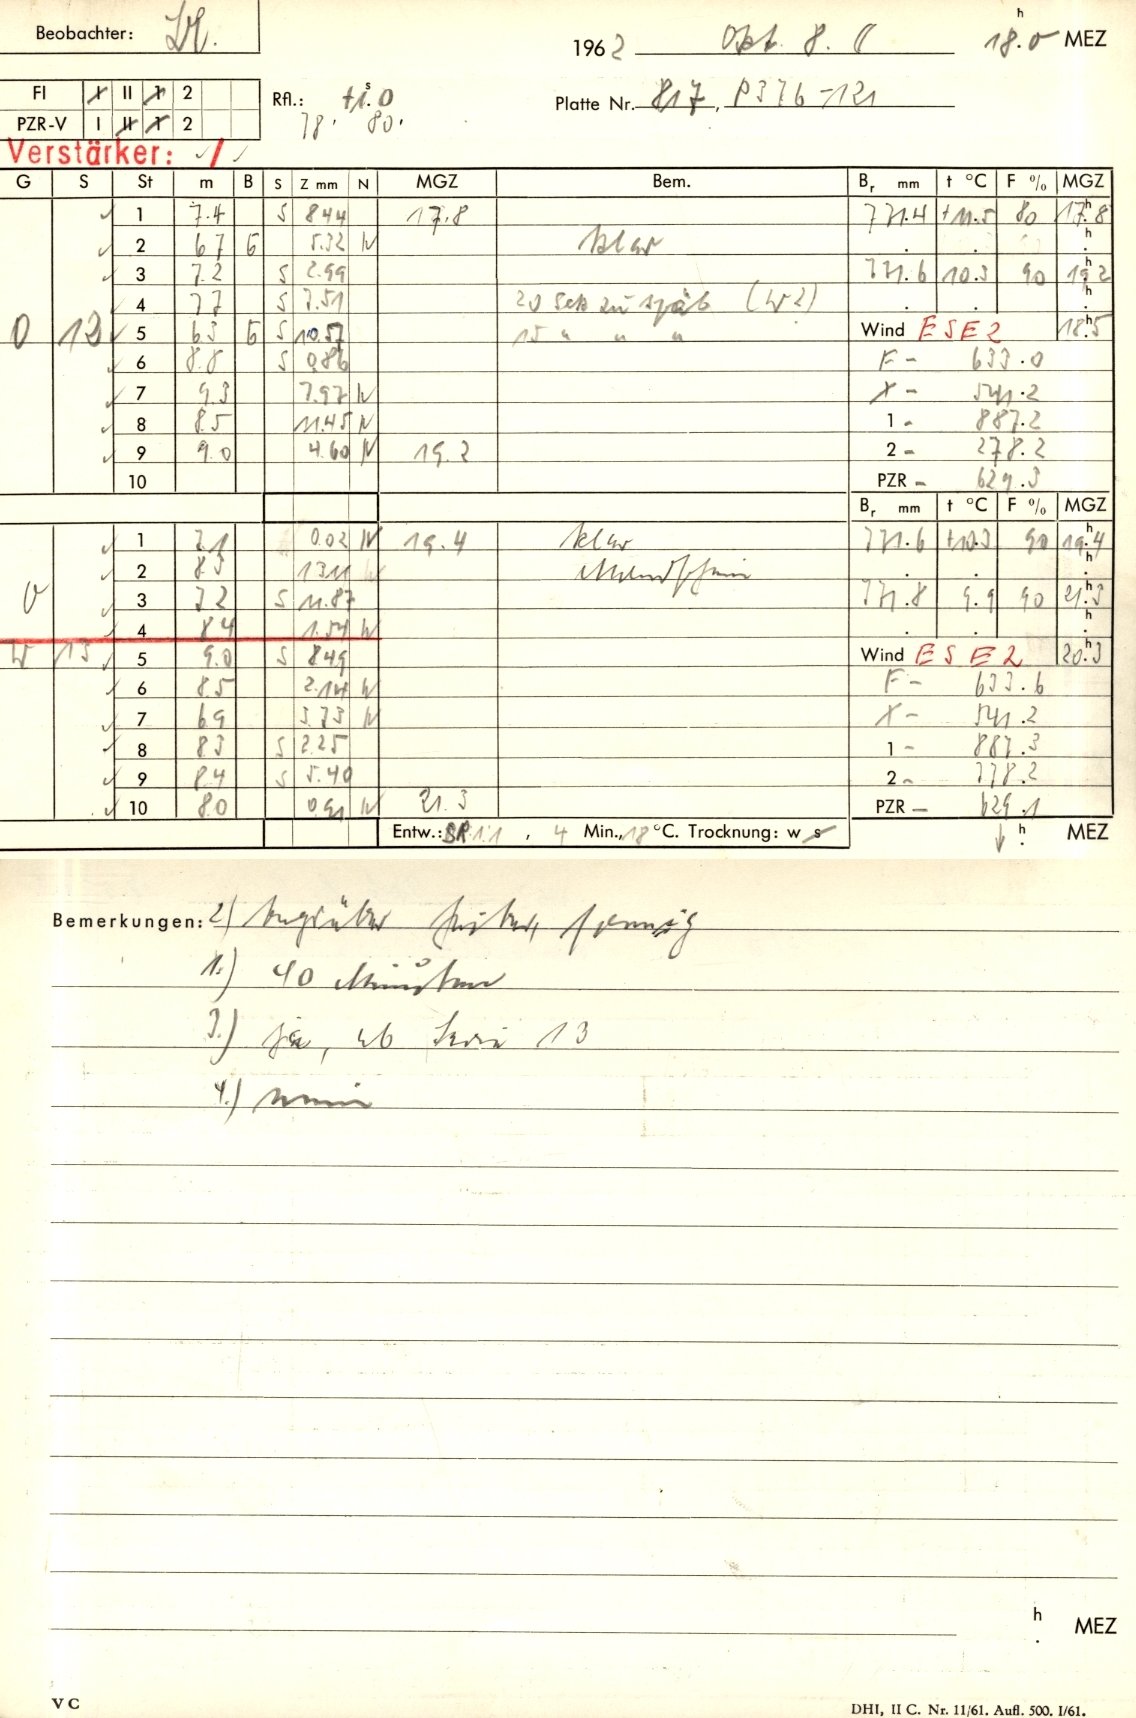 Beobachter:
1962 Okt. 8. 18.0 h MEZ
FI I II 1 2
Rfl.: +1.0 s
PZR-V I II 1 2
78. 80.
Platte Nr. 817, P376-121
Verstärker: /
G S St m B S Z mm N MGZ Bem. Br mm t °C F % MGZ
1 7.4 S 8.44 17.8 771.4 +11.5 80 17.8 h
2 6.7 6 5.32 N klar . . h
3 7.2 S 2.99 771.6 10.3 90 19.2 h
4 7.7 S 7.51 20 Sek zu spät (W2) . . h
O 12 5 6.3 6 S 10.57 15 " " " Wind ESE2 18.5 h
6 8.8 S 0.86 F - 633.0
7 9.3 7.97 N X - 541.2
8 8.5 11.45 N 1 - 887.2
9 9.0 4.60 N 19.2 2 - 278.2
10 PZR - 629.3
Br mm t °C F % MGZ
1 7.1 0.02 N 19.4 klar 771.6 +10.3 90 19.4 h
2 8.5 13.11 N Mondschein . . h
O 3 7.2 S 11.87 771.8 9.9 90 21.3 h
4 8.4 1.54 N . . h
W 13 5 9.0 S 8.49 Wind ESE2 20.3 h
6 8.5 2.14 N F - 633.6
7 6.9 3.73 N X - 541.2
8 8.3 S 2.25 1 - 887.3
9 8.4 S 5.40 2 - 778.2
10 8.0 0.91 N 21.3 PZR - 629.1
Entw.: 1:1, 4 Min., 18 °C. Trocknung: w s h MEZ
Bemerkungen: 2)
1.) 40 Minuten
3.) ja, ab Serie 13
4.) nein
h MEZ
V C
DHI, II C. Nr. 11/61. Aufl. 500. I/61.